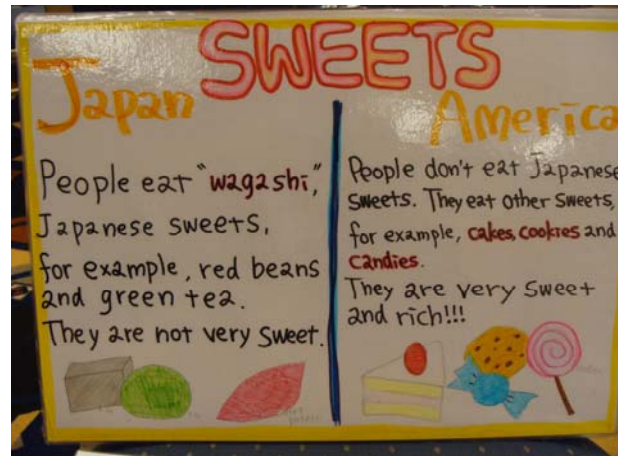 SWEETS
Japan
People eat "wagashi,"
Japanese sweets,
for example, red beans
and green tea.
They are not very sweet.
America
People don't eat Japanese
sweets. They eat other sweets,
for example, cakes, cookies and
candies.
They are very sweet
and rich!!!